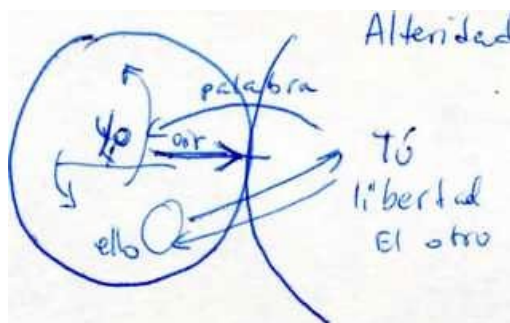 Alteridad
palabra
Yo
oir
Tú
libertad
ello
El otro